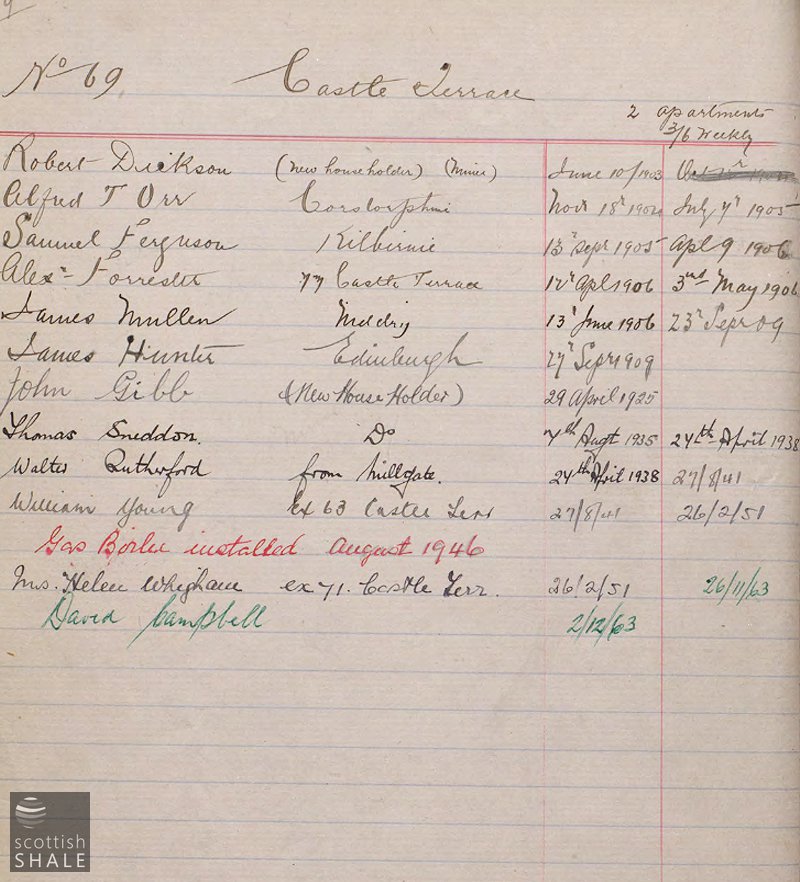 No 69, Castle Terrace
2 apartments
3/6 Weekly
Robert Dickson (New householder) (Miner) June 10/1903
Alfred T Orr Corstorphine Novr 18th 1904 July 7th 1905
Samuel Ferguson Kilbirnie 13th Sept 1905 Apl 9 1906
Alexr Forrester 77 Castle Terrace 12th Apl 1906 3rd May 1906
James Mullen Niddry 13th June 1906 23rd Sepr 09
James Hunter Edinburgh 27th Sepr 1909
John Gibb (New House Holder) 29 April 1925
Thomas Sneddon. Do 7th Augt 1935 24th April 1938
Walter Rutherford from Millgate. 24th April 1938 27/8/41
William Young ex 63 Castle Terr 27/8/41 26/2/51
Gas Boiler installed August 1946
Mrs. Helen Whigham ex 71. Castle Terr. 26/2/51 26/11/63
David Campbell 2/12/63
scottish
SHALE